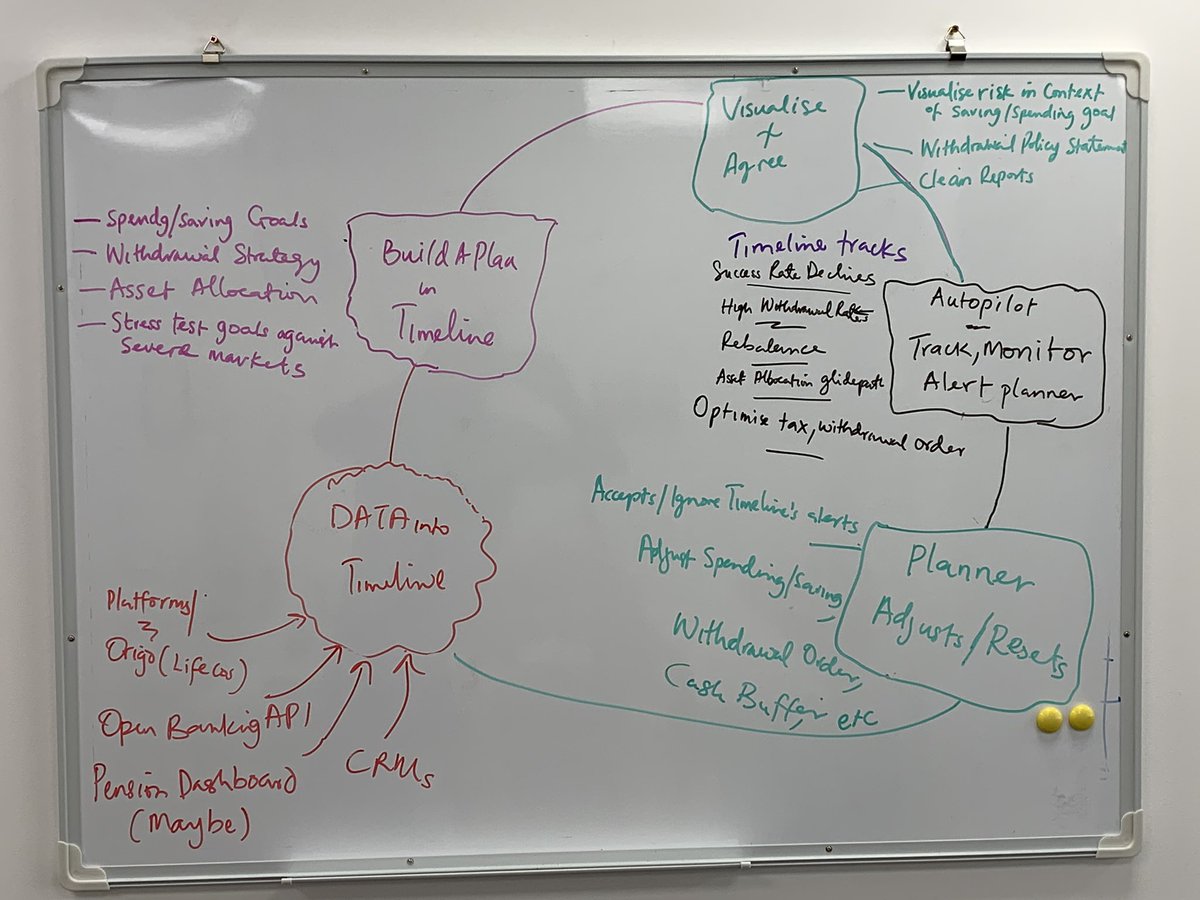 Visualise
+
Agree
— Visualise risk in Context
of Saving/Spending goal
— Withdrawal Policy Statement
— Clean Reports
— Spendg/Saving Goals
— Withdrawal Strategy
— Asset Allocation
— Stress test goals against
Severe markets
Build A Plan
in
Timeline
Timeline tracks
Success Rate Declines
High Withdrawal Rates
Rebalance
Asset Allocation glidepath
Optimise tax, withdrawal order
Autopilot
Track, Monitor
Alert planner
DATA into
Timeline
Platforms/
Origo (Life Cos)
Open Banking API
Pension Dashboard
(Maybe)
CRMs
Accepts/Ignore Timeline's alerts
Adjust Spending/Saving,
Withdrawal Order,
Cash Buffer, etc
Planner
Adjusts/Resets